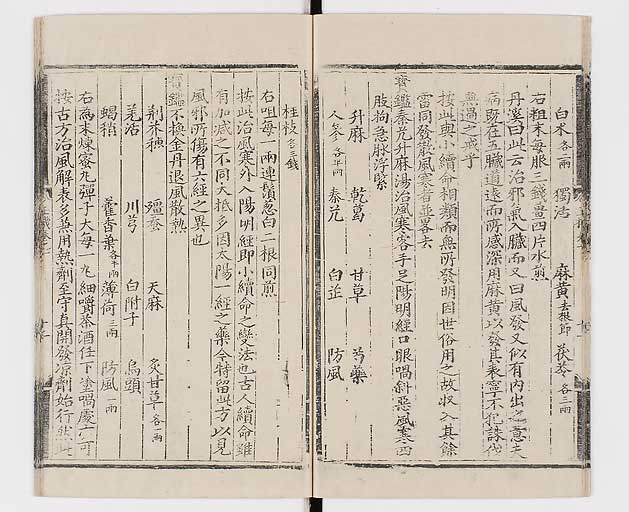 白朮各一兩 獨活 麻黃去根節 茯苓各三兩
右粗末每服三錢薑四片水煎
丹溪曰此云治邪氣入臟而又曰風發又似有內出之意夫
病既在五臟道遠而所感深用麻黃以發其表寧不犯誅伐
無過之戒乎
按此與小續命相類而無所發明因世俗用之故収入其餘
當同發散風寒者並畧去
寶鑑秦艽升麻湯治風寒客手足陽明經口眼喎斜惡風寒四
肢拘急脉浮緊
升麻 乾葛 甘草 芍藥
人參各半兩 秦艽 白芷 防風
桂枝各三錢
右㕮咀每一兩連鬚葱白二根同煎
按此治風寒外入陽明經即小續命之變法也古人續命雖
有加减之不同大抵多因太陽一經之藥今特留此方以見
風邪所傷有六經之異也
寶鑑不換金丹退風散熱
荆芥穗 殭蚕 天麻 炙甘草各一兩
羌活 川芎 白附子 烏頭
蝎稍 藿香葉各半兩 薄荷三兩 防風一兩
右為末煉蜜丸彈子大每一丸細嚼茶酒任下塗喎處亦可
按古方治風解表多兼用熱劑至守真開發凉劑始行然此